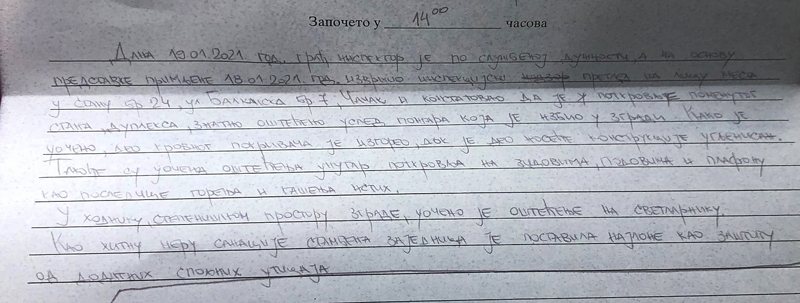 Започето у 14⁰⁰ часова
Дана 19.01.2021. год. грађ. инспектор је по службеној дужности, а на основу
представке примљене 18.01.2021. год, извршио инспекцијски преглед на лицу места
у стану бр 24, ул Балканска бр 7, Чачак и констатовао да је поткровље поменутог
стана, дуплекса, знатно оштећено услед пожара која је избио у згради. Како је
уочено, део кровног покривача је изгорео, док је део носеће конструкције угљенисан.
Такође су уочена оштећења унутар поткровља на зидовима, подовима и плафону
као последице горења и гашења истих.
У ходнику, степенишном простору зграде, уочено је оштећење на светларнику.
Као хитну меру санације стамбена заједница је поставила најлоне као заштиту
од додатних спољних утицаја